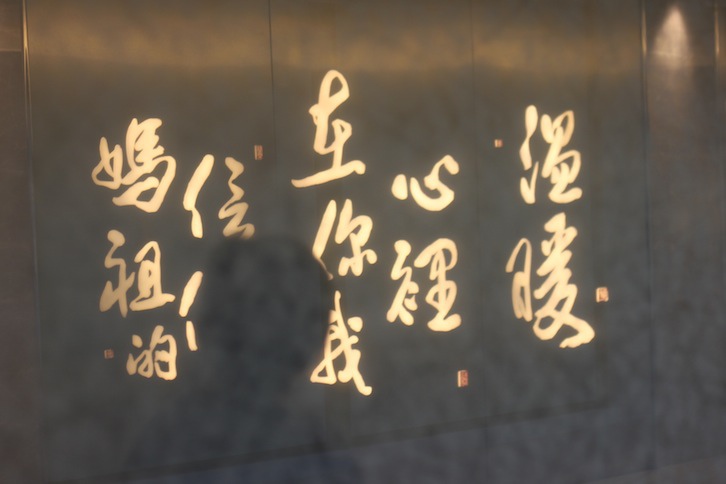 媽祖的
信
在你我
心裡
溫暖